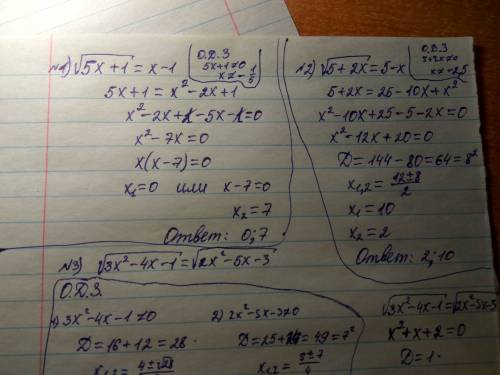 №1) √5x+1 = x-1
О.Д.З
5x+1≠0
x≠-1/5
5x+1 = x²-2x+1
x²-2x+1-5x-1=0
x²-7x=0
x(x-7)=0
x₁=0 или x-7=0
x₂=7
Ответ: 0;7
№2) √5+2x=5-x
О.Д.З
x≠-2,5
5+2x=25-10x+x²
x²-10x+25-5-2x=0
x²-12x+20=0
D=144-80=64=8²
x₁,₂=12±8/2
x₁=10
x₂=2
Ответ: 2;10
№3) √3x²-4x-1=√2x²-5x-3
О.Д.З.
1) 3x²-4x-1≠0
D=16+12=28
x₁,₂=4±√28
2) 2x²-5x-3≠0
D=25+24=49=7²
x₁,₂=5±7/4
√3x²-4x-1=√2x²-5x-3
x²+x+2=0
D=1-